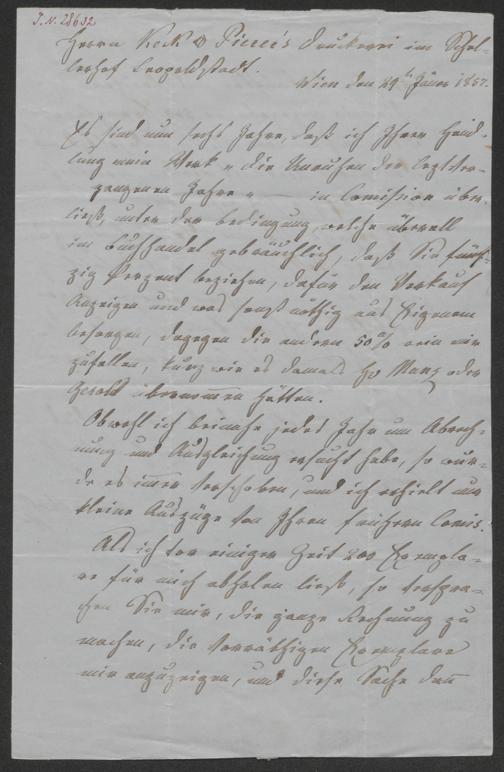 I.N. 28632
Herrn Keck & Pierer's Druckerei im Schul-
lerhof Leopoldstadt.
Wien den 29t Jäner 1857.
Es sind nun sechs Jahre, daß ich Ihrer Hand-
lung mein Werk „die Unruhen der letztver-
gangenen Jahre“ in Comission über-
ließ, unter der Bedingung, welche überall
im Buchhandel gebräuchlich, daß Sie fünf-
zig Perzent beziehen, dafür den Verkauf
Anzeigen und was sonst nöthig aus Eigenem
besorgen, dagegen die andern 50 % rein mir
zufallen, kurz wie es damals H Manz oder
Gerold übernommen hätten.
Obwohl ich beinahe jedes Jahr um Abrech-
nung und Ausgleichung ersucht habe, so wur-
de es immer verschoben, und ich erhielt nur
kleine Auszüge von Ihrem frühern Comis.
Als ich vor einiger Zeit 200 Exempla-
re für mich abholen ließ, so verspra-
chen Sie mir, die ganze Rechnung zu
machen, die vorräthigen Exemplare
mir anzuzeigen, und diese Sache dann